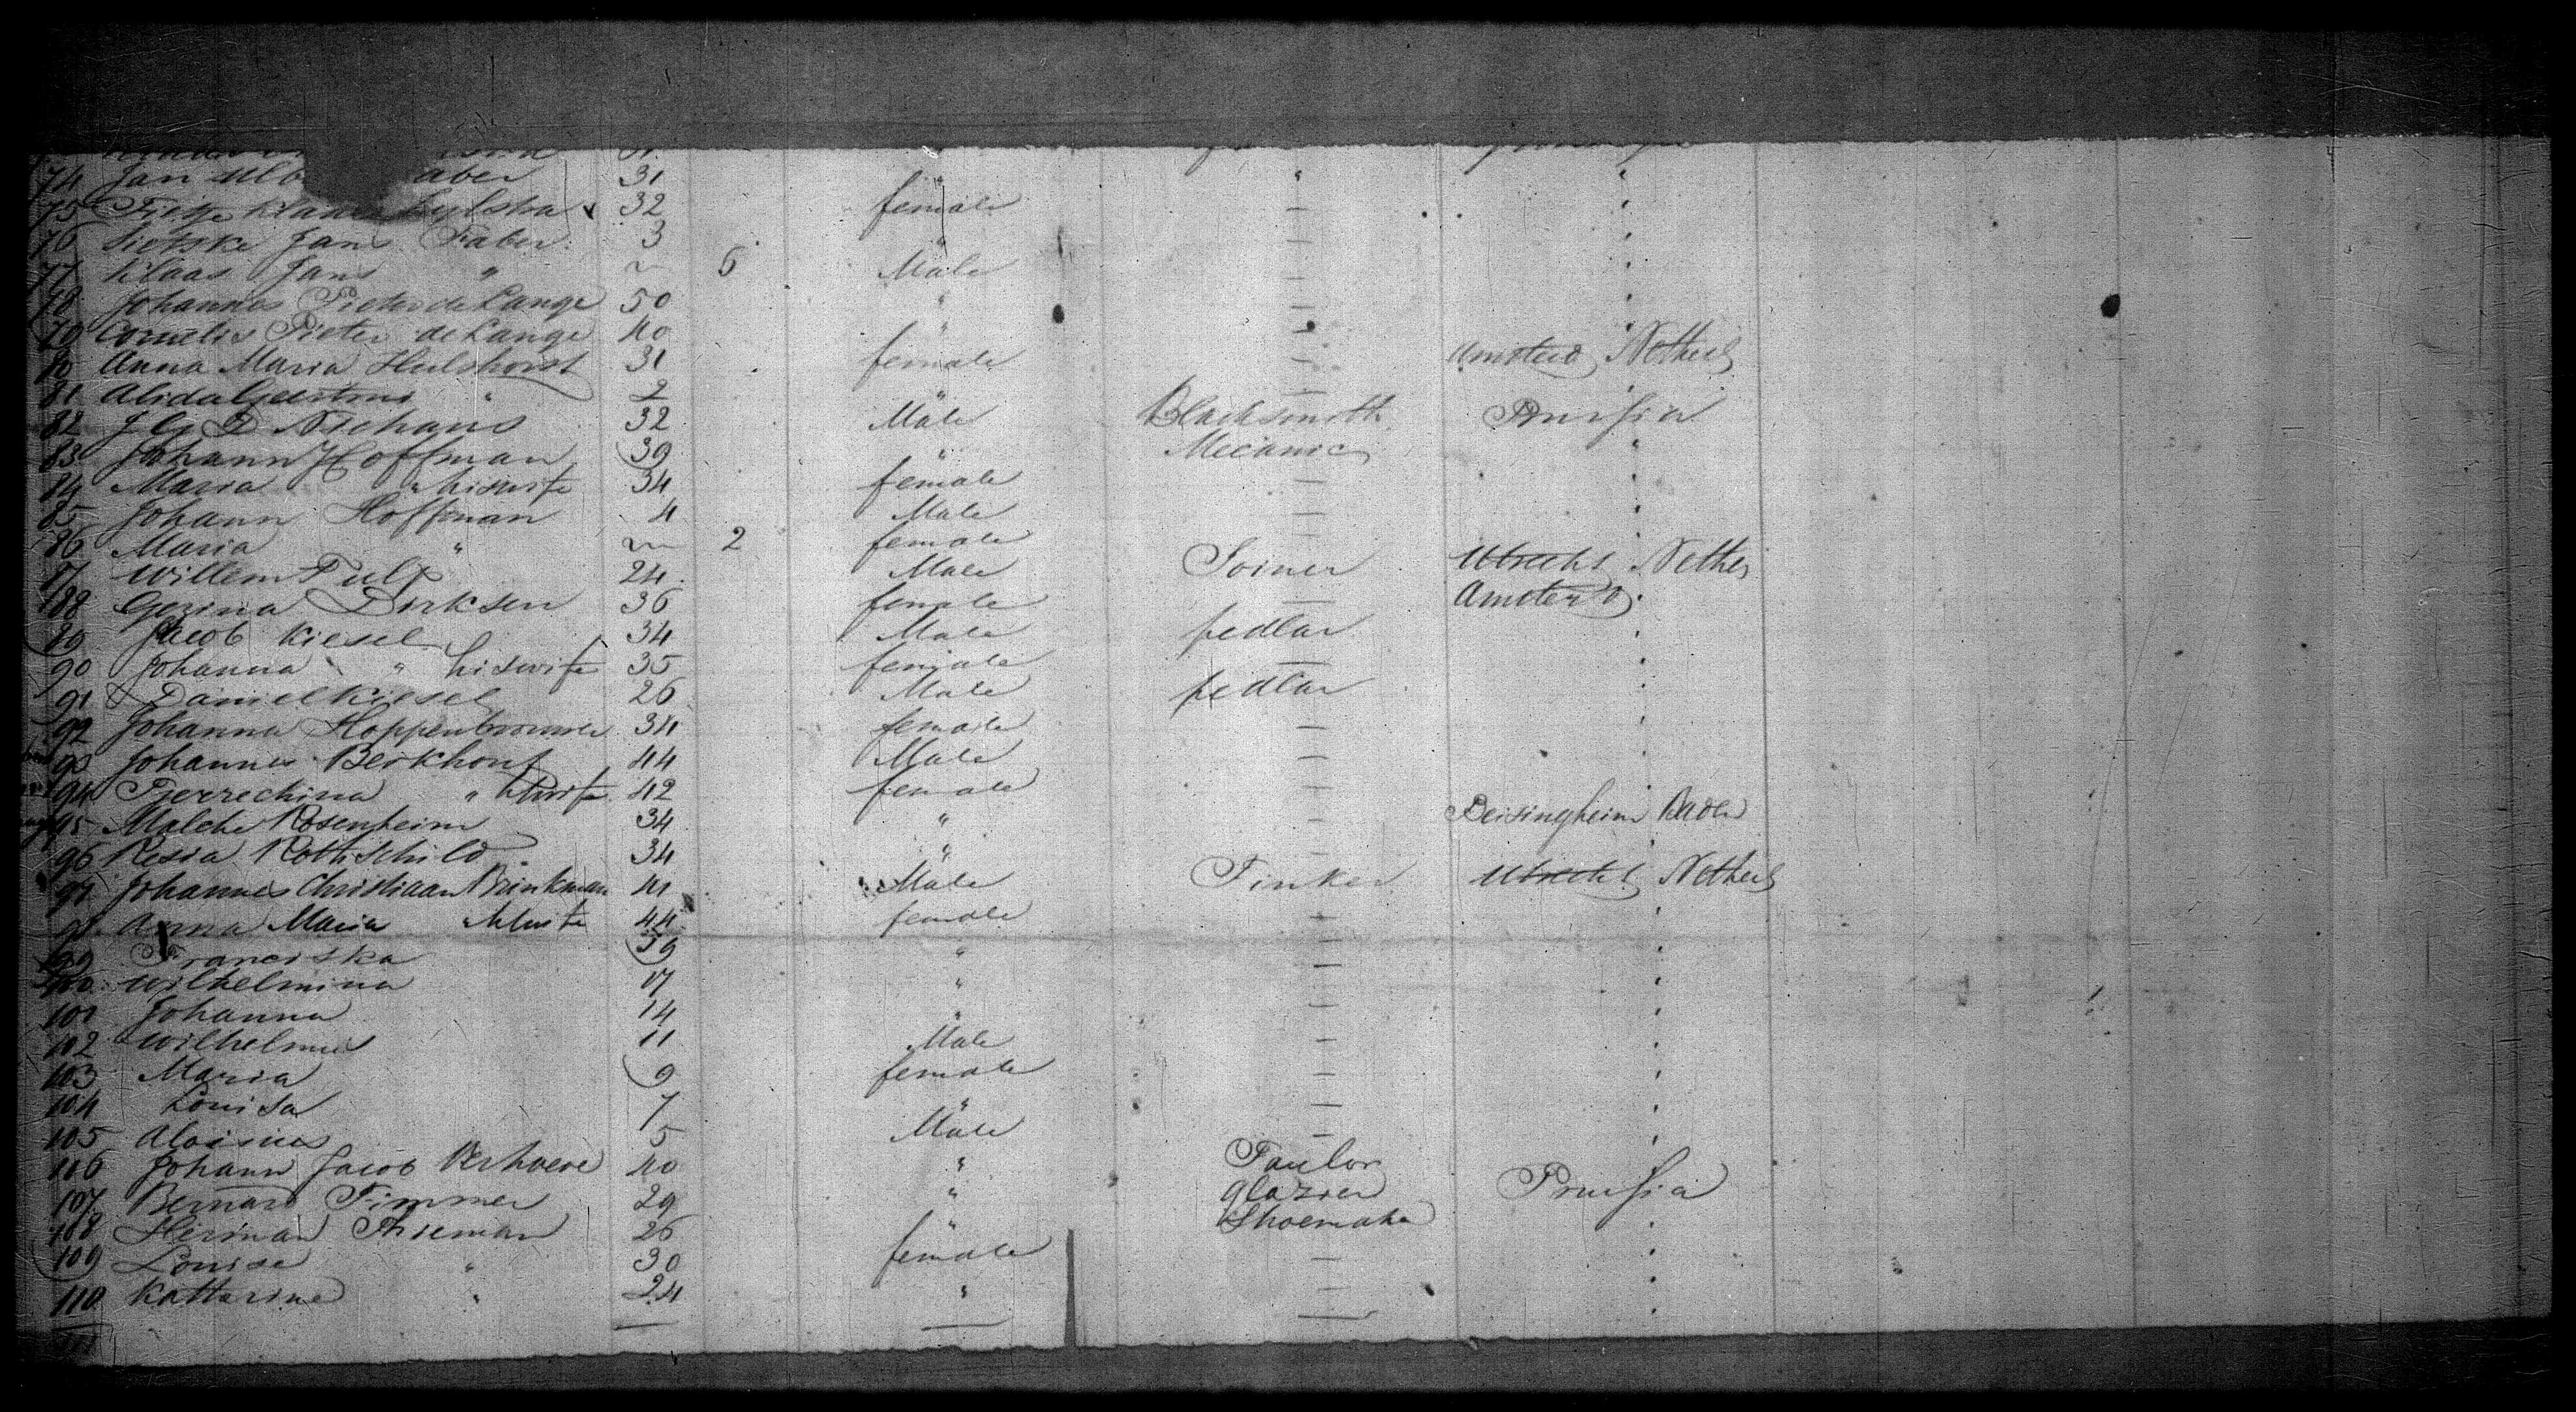 74 Jan Alb aber 31 " " "
75 Tietje Klaas Zylstra 32 female — "
76 Sietske Jans Faber 3 " — "
77 Klaas Jans " ~ 6 Male — "
78 Johannes Pieter de Lange 50 " — "
79 Cornelis Pieter de Lange 40 " — "
80 Anna Maria Hulshorst 31 female — Amsterd Netherl
81 Alida " 2 " — "
82 J G D Niehaus 32 Male Blacksmith Prussia
83 Johann Hoffman 39 " Mecanic "
84 Maria " his wife 34 female — "
85 Johann Hoffman 4 Male — "
86 Maria " ~ 2 female — "
87 Willem Tulp 24 Male Joiner Utrecht Nethe
88 Gezina Dirksen 36 female — Amsterd "
89 Jacob Kiesel 34 Male pedlar "
90 Johanna " his wife 35 female — "
91 Daniel Kiesel 26 Male pedlar "
92 Johanna Hoppenbrouwer 34 female — "
93 Johannes Berkhout 44 Male — "
94 Tjerrechina " his wife 42 female — "
95 Malche Rosenheim 34 " — Beisingheim Baden
96 Resia Rothschild 34 " — "
97 Johannes Christiaan Brinkman 41 Male Tinker Utrecht Netherl
98 Anna Maria " his wife 44 female — "
99 Franciska 19 " — "
100 Wilhelmina 17 " — "
101 Johanna 14 " — "
102 Wilhelmus 11 Male — "
103 Maria 9 female — "
104 Louisa 7 " — "
105 Aloisius 5 Male — "
106 Johann Jacob Verhoeve 40 " Taylor
107 Bernard Timmer 29 " glazier Prussia
108 Herman Thieman 26 " Shoemaker "
109 Louise " 30 female — "
110 Katharine " 24 " — "